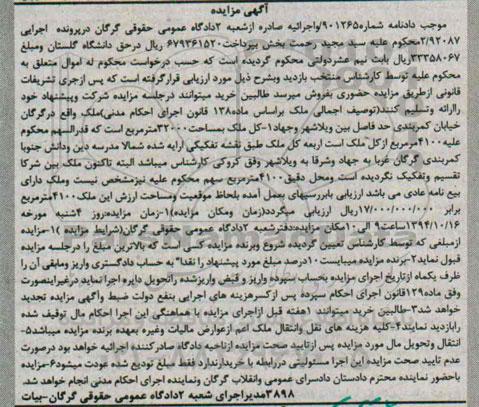 آگهی مزایده
بموجب دادنامه شماره ۹۰۱۲۶۵/واجرائیه صادره ازشعبه ۲دادگاه عمومی حقوقی گرگان درپرونده اجرایی
۲/۹۲۰۸۷محکوم علیه سید مجید رحمت بخش بپرداخت ۶۷۹۳۶۱۵۲۰ ریال درحق دانشگاه گلستان ومبلغ
۳۳۳۵۸۰۶۷ ریال بابت نیم عشردولتی محکوم گردیده است که حسب درخواست محکوم له اموال متعلق به
محکوم علیه توسط کارشناس منتخب بازدید وبشرح ذیل مورد ارزیابی قرارگرفته است که پس ازجری تشریفات
قانونی ازطریق مزایده حضوری بفروش میرسد طالبین خرید میتوانند درجلسه مزایده شرکت وپیشنهاد خود
راارائه وتسلیم کنند(توصیف اجمالی ملک براساس ماده۱۳۸ قانون اجرای احکام مدنی)ملک واقع درگرگان
خیابان کمربندی حد فاصل بین ویلاشهر وجهاد۱-کل ملک بمساحت۳۲۰۰۰مترمربع است که قدرالسهم محکوم
علیه۴۱۰۰مترمربع ازکل ملک است اربعه کل ملک طبق نقشه تفکیکی ارایه شده شمالا مدرسه دین ودانش جنوبا
کمربندی گرگان غربا به جهاد وشرقا به ویلاشهر وفق کروکی کارشناس میباشد البته تاکنون ملک بین شرکا
تقسیم وتفکیک نگردیده است ومحل دقیق۴۱۰۰مترمربع سهم محکوم علیه نیزمشخص نیست وملک دارای
بیع نامه عادی می باشد ارزیابی بابررسیهای بعمل آمده بلحاظ موقعیت ومساحت ارزش این ملک۴۱۰۰مترمربع
برابر ۱۷/۰۰۰/۰۰۰/۰۰۰ریال ارزیابی میگردد(زمان ومکان مزایده)۱-زمان مزایده:روز ۴شنبه مورخه
۱۳۹۴/۱۰/۱۶ساعت۹ الی۱۰مکان مزایده:دفترشعبه ۲دادگاه عمومی حقوقی گرگان(شرایط مزایده )۱-مزایده
ازمبلغی که توسط کارشناس تعیین گردیده شروع وبرنده مزایده کسی است که بالاترین مبلغ را درجلسه مزایده
قبول نماید۲-برنده مزایده میبایست ۱۰درصد مبلغ مورد پیشنهاد را نقدا" به حساب دادگستری واریز ومابقی آن را
ظرف یکماه ازتاریخ اجرای مزایده بحساب سپرده واریز و قبض واریزشده راتحویل دایره اجرا نماید درغیراینصورت
وفق ماده۱۲۹قانون اجرای احکام سپرده پس ازکسرهزینه های اجرایی بنفع دولت ضبط وآگهی مزایده تجدید
خواهد شد۳-طالبین خرید میتوانند ۱هفته قبل ازاجرای مزایده با هماهنگی این اجرا احکام مال توقیف شده
رابازدید نمایند۴-کلیه هزینه های نقل وانتقال ملک اعم ازعوارض مالیات وغیره بعهده برنده مزایده میباشد۵-
انتقال وتحویل مال مورد مزایده پس ازتایید صحت مزایده ازناحیه دادگاه صادرکننده اجرائیه خواهد بود درصورت
عدم تایید صحت مزایده این اجرا مسئولیتی دررابطه با خریدارندارد فقط مبلغ تودیع شده عودت میشود۶-مزایده
باحضور نماینده محترم دادستان دادسرای عمومی وانقلاب گرگان ونماینده اجرای احکام مدنی انجام خواهد شد.
۳۸۹۸مدیراجرای شعبه ۲دادگاه عمومی حقوقی گرگان-بیات